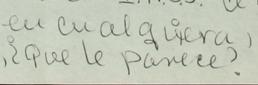 en cualquiera,
¿Que le parece?